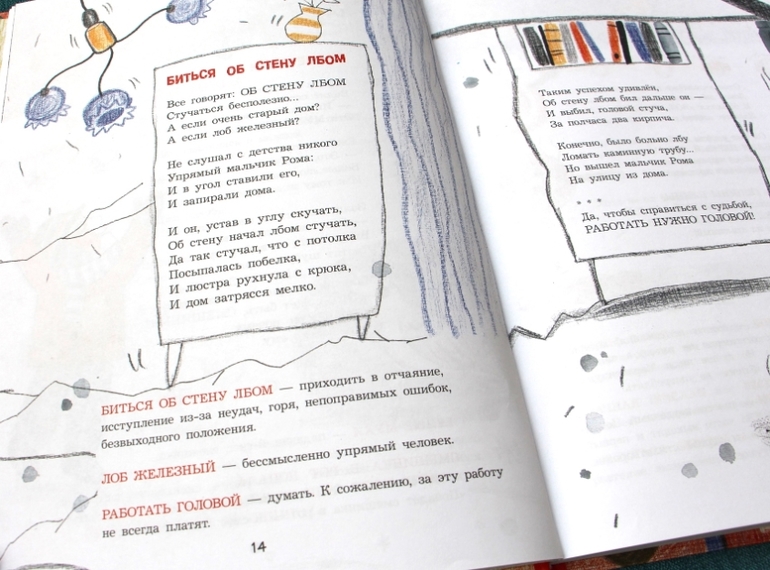 БИТЬСЯ ОБ СТЕНУ ЛБОМ
Все говорят: ОБ СТЕНУ ЛБОМ
Стучаться бесполезно...
А если очень старый дом?
А если лоб железный?
Не слушал с детства никого
Упрямый мальчик Рома:
И в угол ставили его,
И запирали дома.
И он, устав в углу скучать,
Об стену начал лбом стучать,
Да так стучал, что с потолка
Посыпалась побелка,
И люстра рухнула с крюка,
И дом затрясся мелко.
БИТЬСЯ ОБ СТЕНУ ЛБОМ — приходить в отчаяние,
исступление из-за неудач, горя, непоправимых ошибок,
безвыходного положения.
ЛОБ ЖЕЛЕЗНЫЙ — бессмысленно упрямый человек.
РАБОТАТЬ ГОЛОВОЙ — думать. К сожалению, за эту работу
не всегда платят.
14
Таким успехом удивлён,
Об стену лбом бил дальше он —
И выбил, головой стуча,
За полчаса два кирпича.
Конечно, было больно лбу
Ломать каминную трубу...
Но вышел мальчик Рома
На улицу из дома.
* * *
Да, чтобы справиться с судьбой,
РАБОТАТЬ НУЖНО ГОЛОВОЙ!